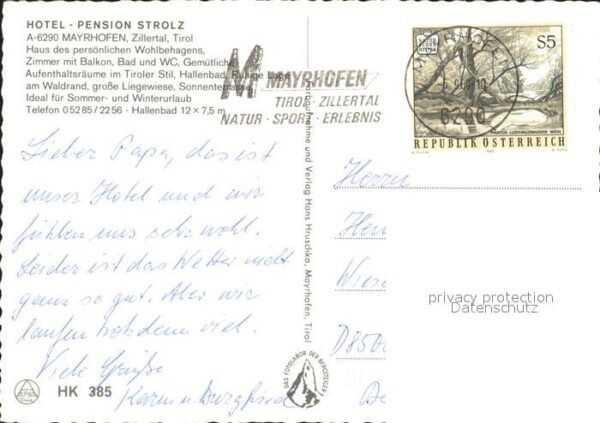 HOTEL - PENSION STROLZ
A-6290 MAYRHOFEN, Zillertal, Tirol
Haus des persönlichen Wohlbehagens,
Zimmer mit Balkon, Bad und WC, Gemütliche
Aufenthaltsräume im Tiroler Stil, Hallenbad, Ruhige Lage
am Waldrand, große Liegewiese, Sonnenterrasse
Ideal für Sommer- und Winterurlaub
Telefon 05285/2256 - Hallenbad 12 x 7,5 m
M MAYRHOFEN
TIROL · ZILLERTAL
NATUR · SPORT · ERLEBNIS
6290
S5
REPUBLIK ÖSTERREICH
Lieber Papa, das ist
unser Hotel und wir
fühlen uns sehr wohl.
Leider ist das Wetter nicht
ganz so gut. Aber wir
laufen trotzdem viel.
Viele Grüße
Karin u.
und Verlag Hans Hruschka, Mayrhofen, Tirol
DAS FOTOLABOR DER BERGSTEIGER
HK 385
Herrn
Wiese
D850
privacy protection
Datenschutz